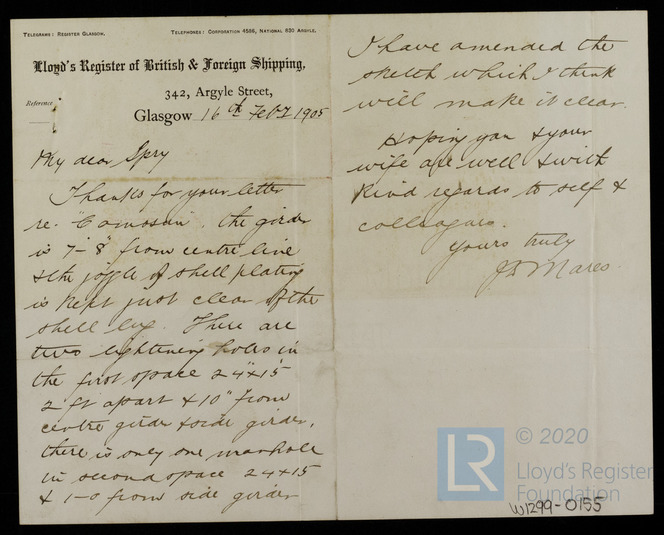 TELEGRAMS: REGISTER GLASGOW. TELEPHONES: CORPORATION 4586, NATIONAL 830 ARGYLE.
Lloyd's Register of British & Foreign Shipping,
342, Argyle Street,
Reference
Glasgow 16th Feby 1905
My dear Spry
Thanks for your letter
re. "Camosun". the girder
is 7'-8" from centre line
& the joggle of shell plating
is kept just clear of the
shell lug. There are
two lightening holes in
the first space 24"x15"
2 ft apart & 10" from
centre girder & side girder,
there is only one manhole
in second space 24x15
& 1-0 from side girder
I have amended the
sketch which I think
will make it clear.
Hoping you & your
wife are well & with
kind regards to self &
colleagues.
Yours truly
Mares.
LR © 2020
Lloyd's Register
Foundation
W1299-0155